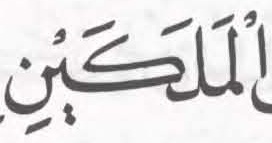 ٱلْمَلَكَيْنِ